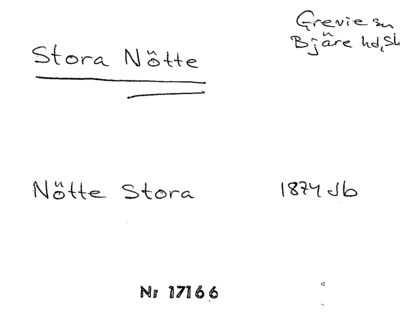 Grevie sn
Bjäre hd, Sk
Stora Nötte
Nötte Stora 1874 Jb
Nr 17166